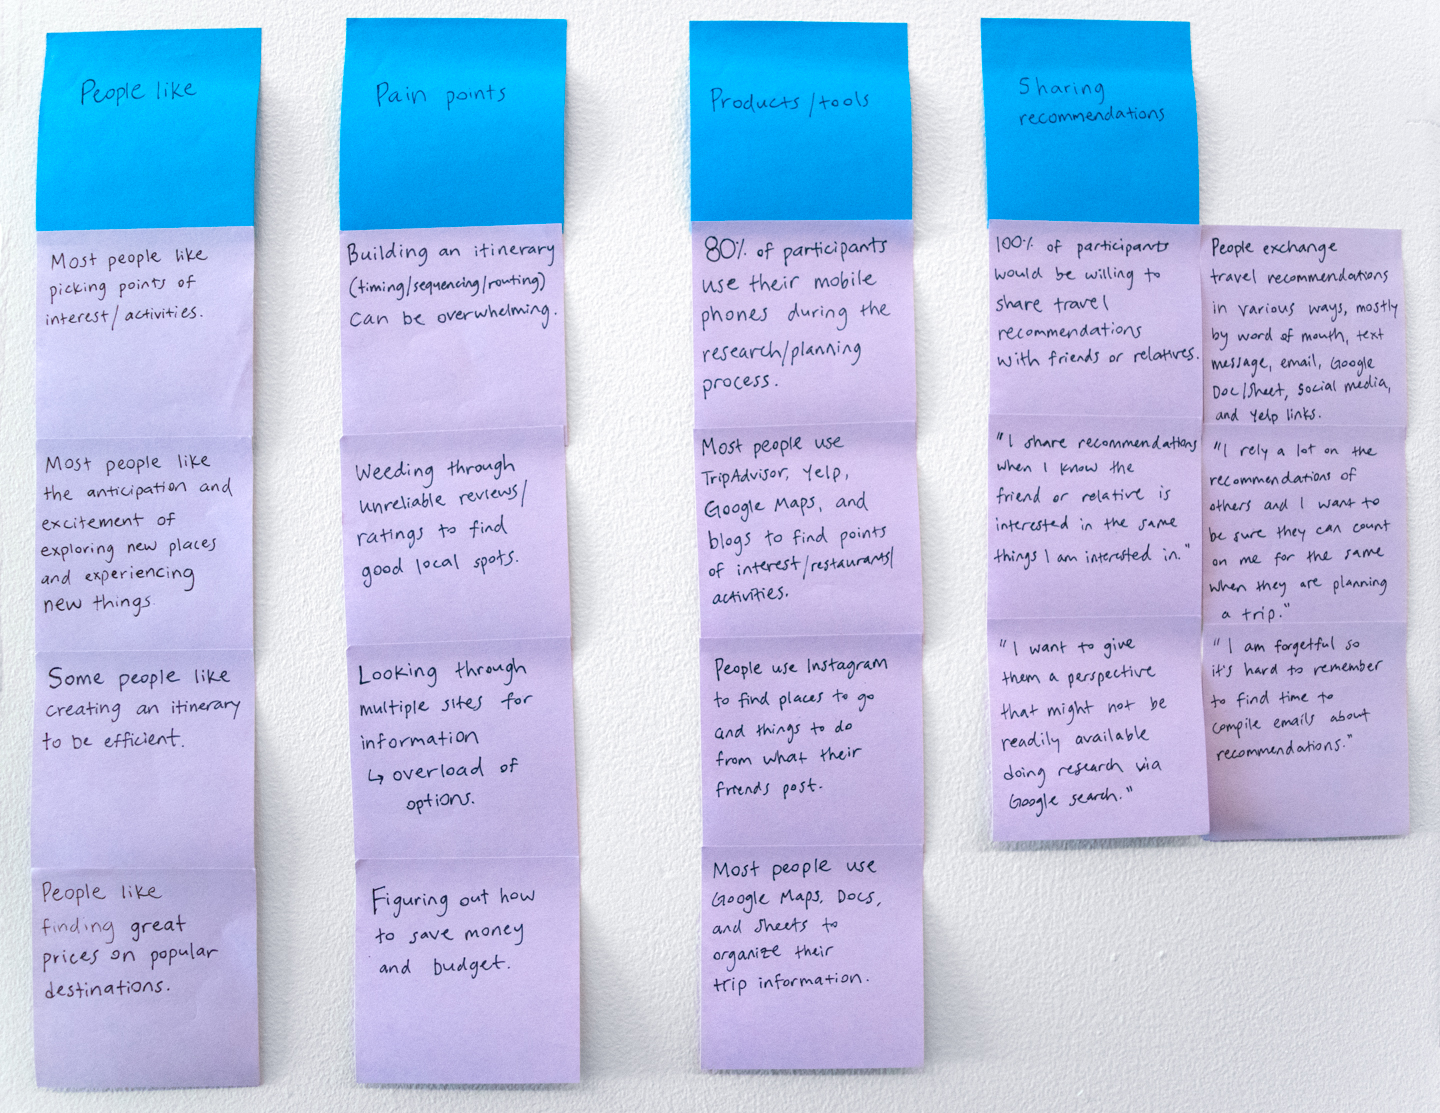 People like
Most people like
picking points of
interest/activities.
Most people like
the anticipation and
excitement of
exploring new places
and experiencing
new things.
Some people like
creating an itinerary
to be efficient.
People like
finding great
prices on popular
destinations.
Pain points
Building an itinerary
(timing/sequencing/routing)
can be overwhelming.
Weeding through
unreliable reviews/
ratings to find
good local spots.
Looking through
multiple sites for
information
↳ overload of
options.
Figuring out how
to save money
and budget.
Products/tools
80% of participants
use their mobile
phones during the
research/planning
process.
Most people use
TripAdvisor, Yelp,
Google Maps, and
blogs to find points
of interest/restaurants/
activities.
People use Instagram
to find places to go
and things to do
from what their
friends post.
Most people use
Google Maps, Docs,
and Sheets to
organize their
trip information.
Sharing
recommendations
100% of participants
would be willing to
share travel
recommendations
with friends or relatives.
"I share recommendations
when I know the
friend or relative is
interested in the same
things I am interested in."
"I want to give
them a perspective
that might not be
readily available
doing research via
Google search."
People exchange
travel recommendations
in various ways, mostly
by word of mouth, text
message, email, Google
Doc/Sheet, social media,
and Yelp links.
"I rely a lot on the
recommendations of
others and I want to
be sure they can count
on me for the same
when they are planning
a trip."
"I am forgetful so
it's hard to remember
to find time to
compile emails about
recommendations."